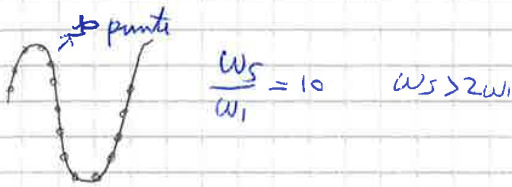 10 punti
ωs/ω1 = 10 ωs > 2ω1